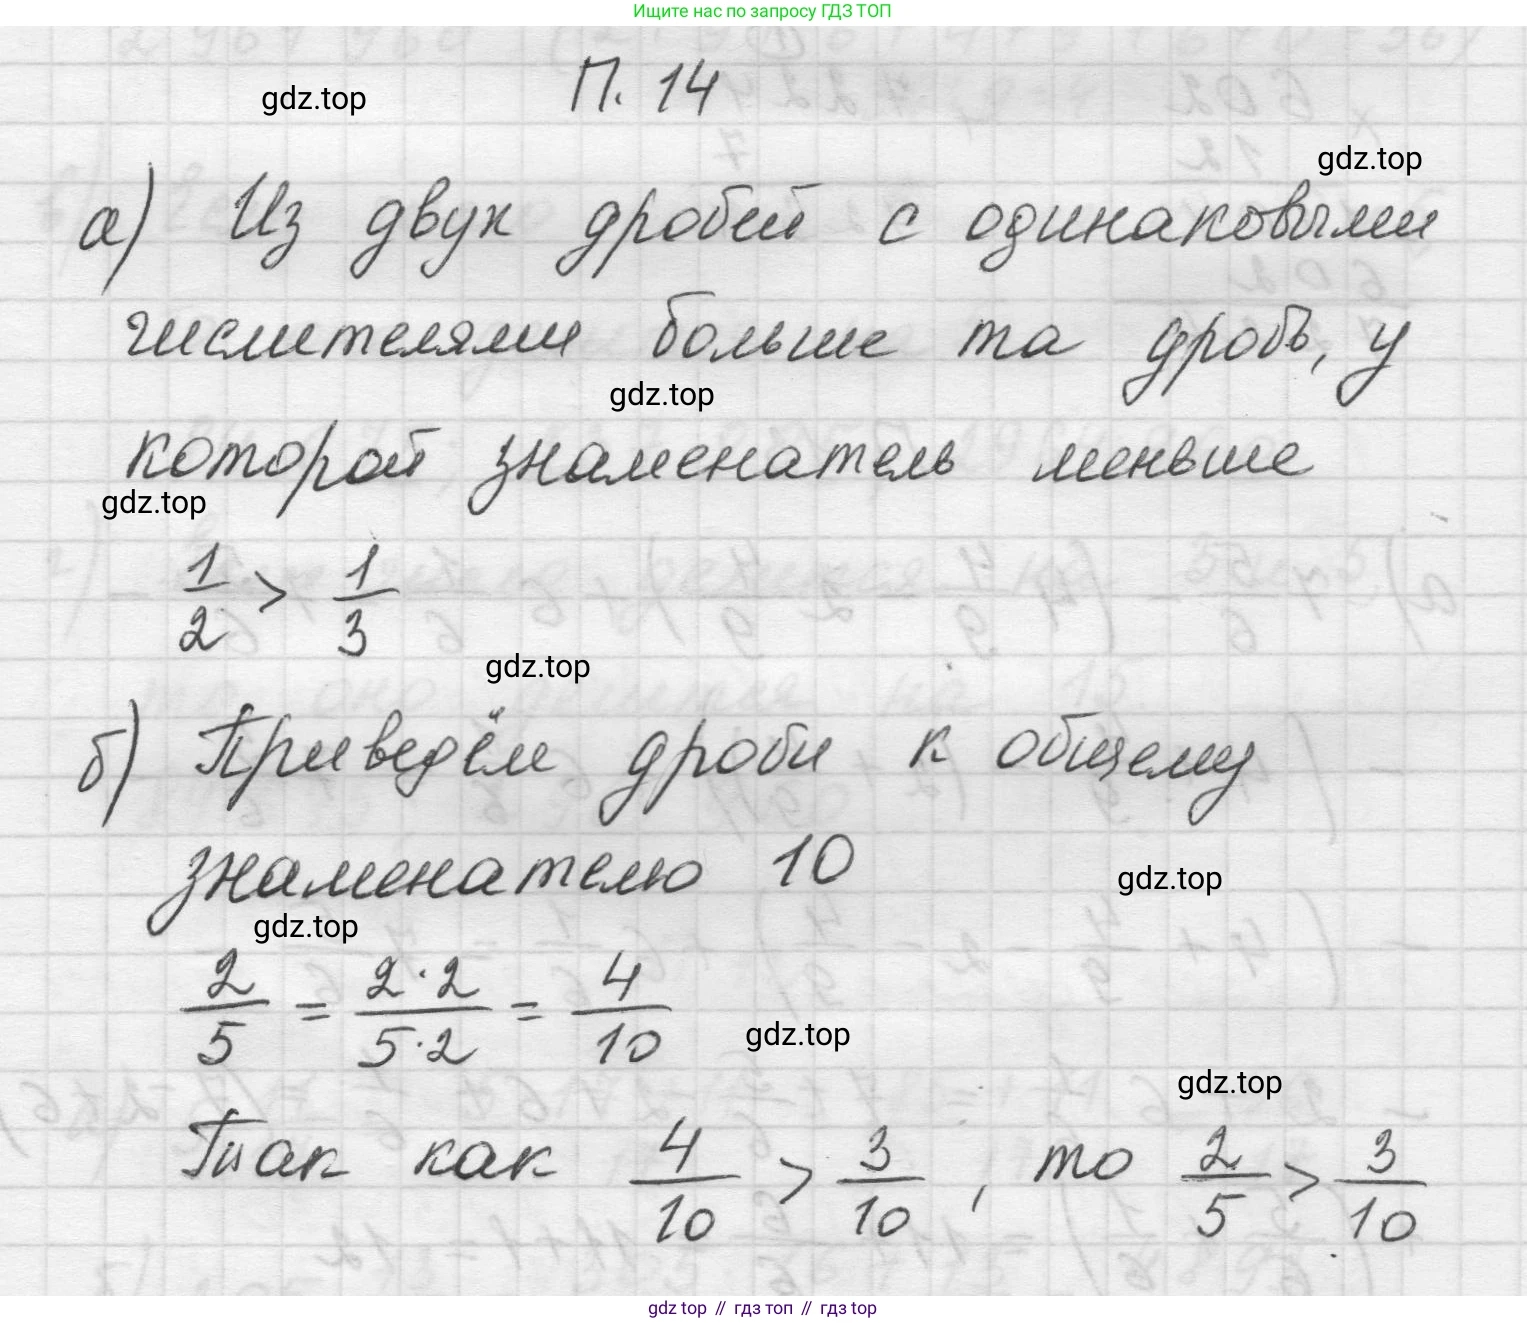 Ищите нас по запросу ГДЗ ТОП
П. 14
gdz.top
gdz.top
а) Из двух дробей с одинаковыми
числителями больше та дробь, у
gdz.top
которой знаменатель меньше
gdz.top
1/2 > 1/3
gdz.top
б) Приведём дроби к общему
знаменателю 10
gdz.top
gdz.top
2/5 = 2·2/5·2 = 4/10
gdz.top
gdz.top
Так как 4/10 > 3/10, то 2/5 > 3/10
gdz top // гдз топ // гдз top